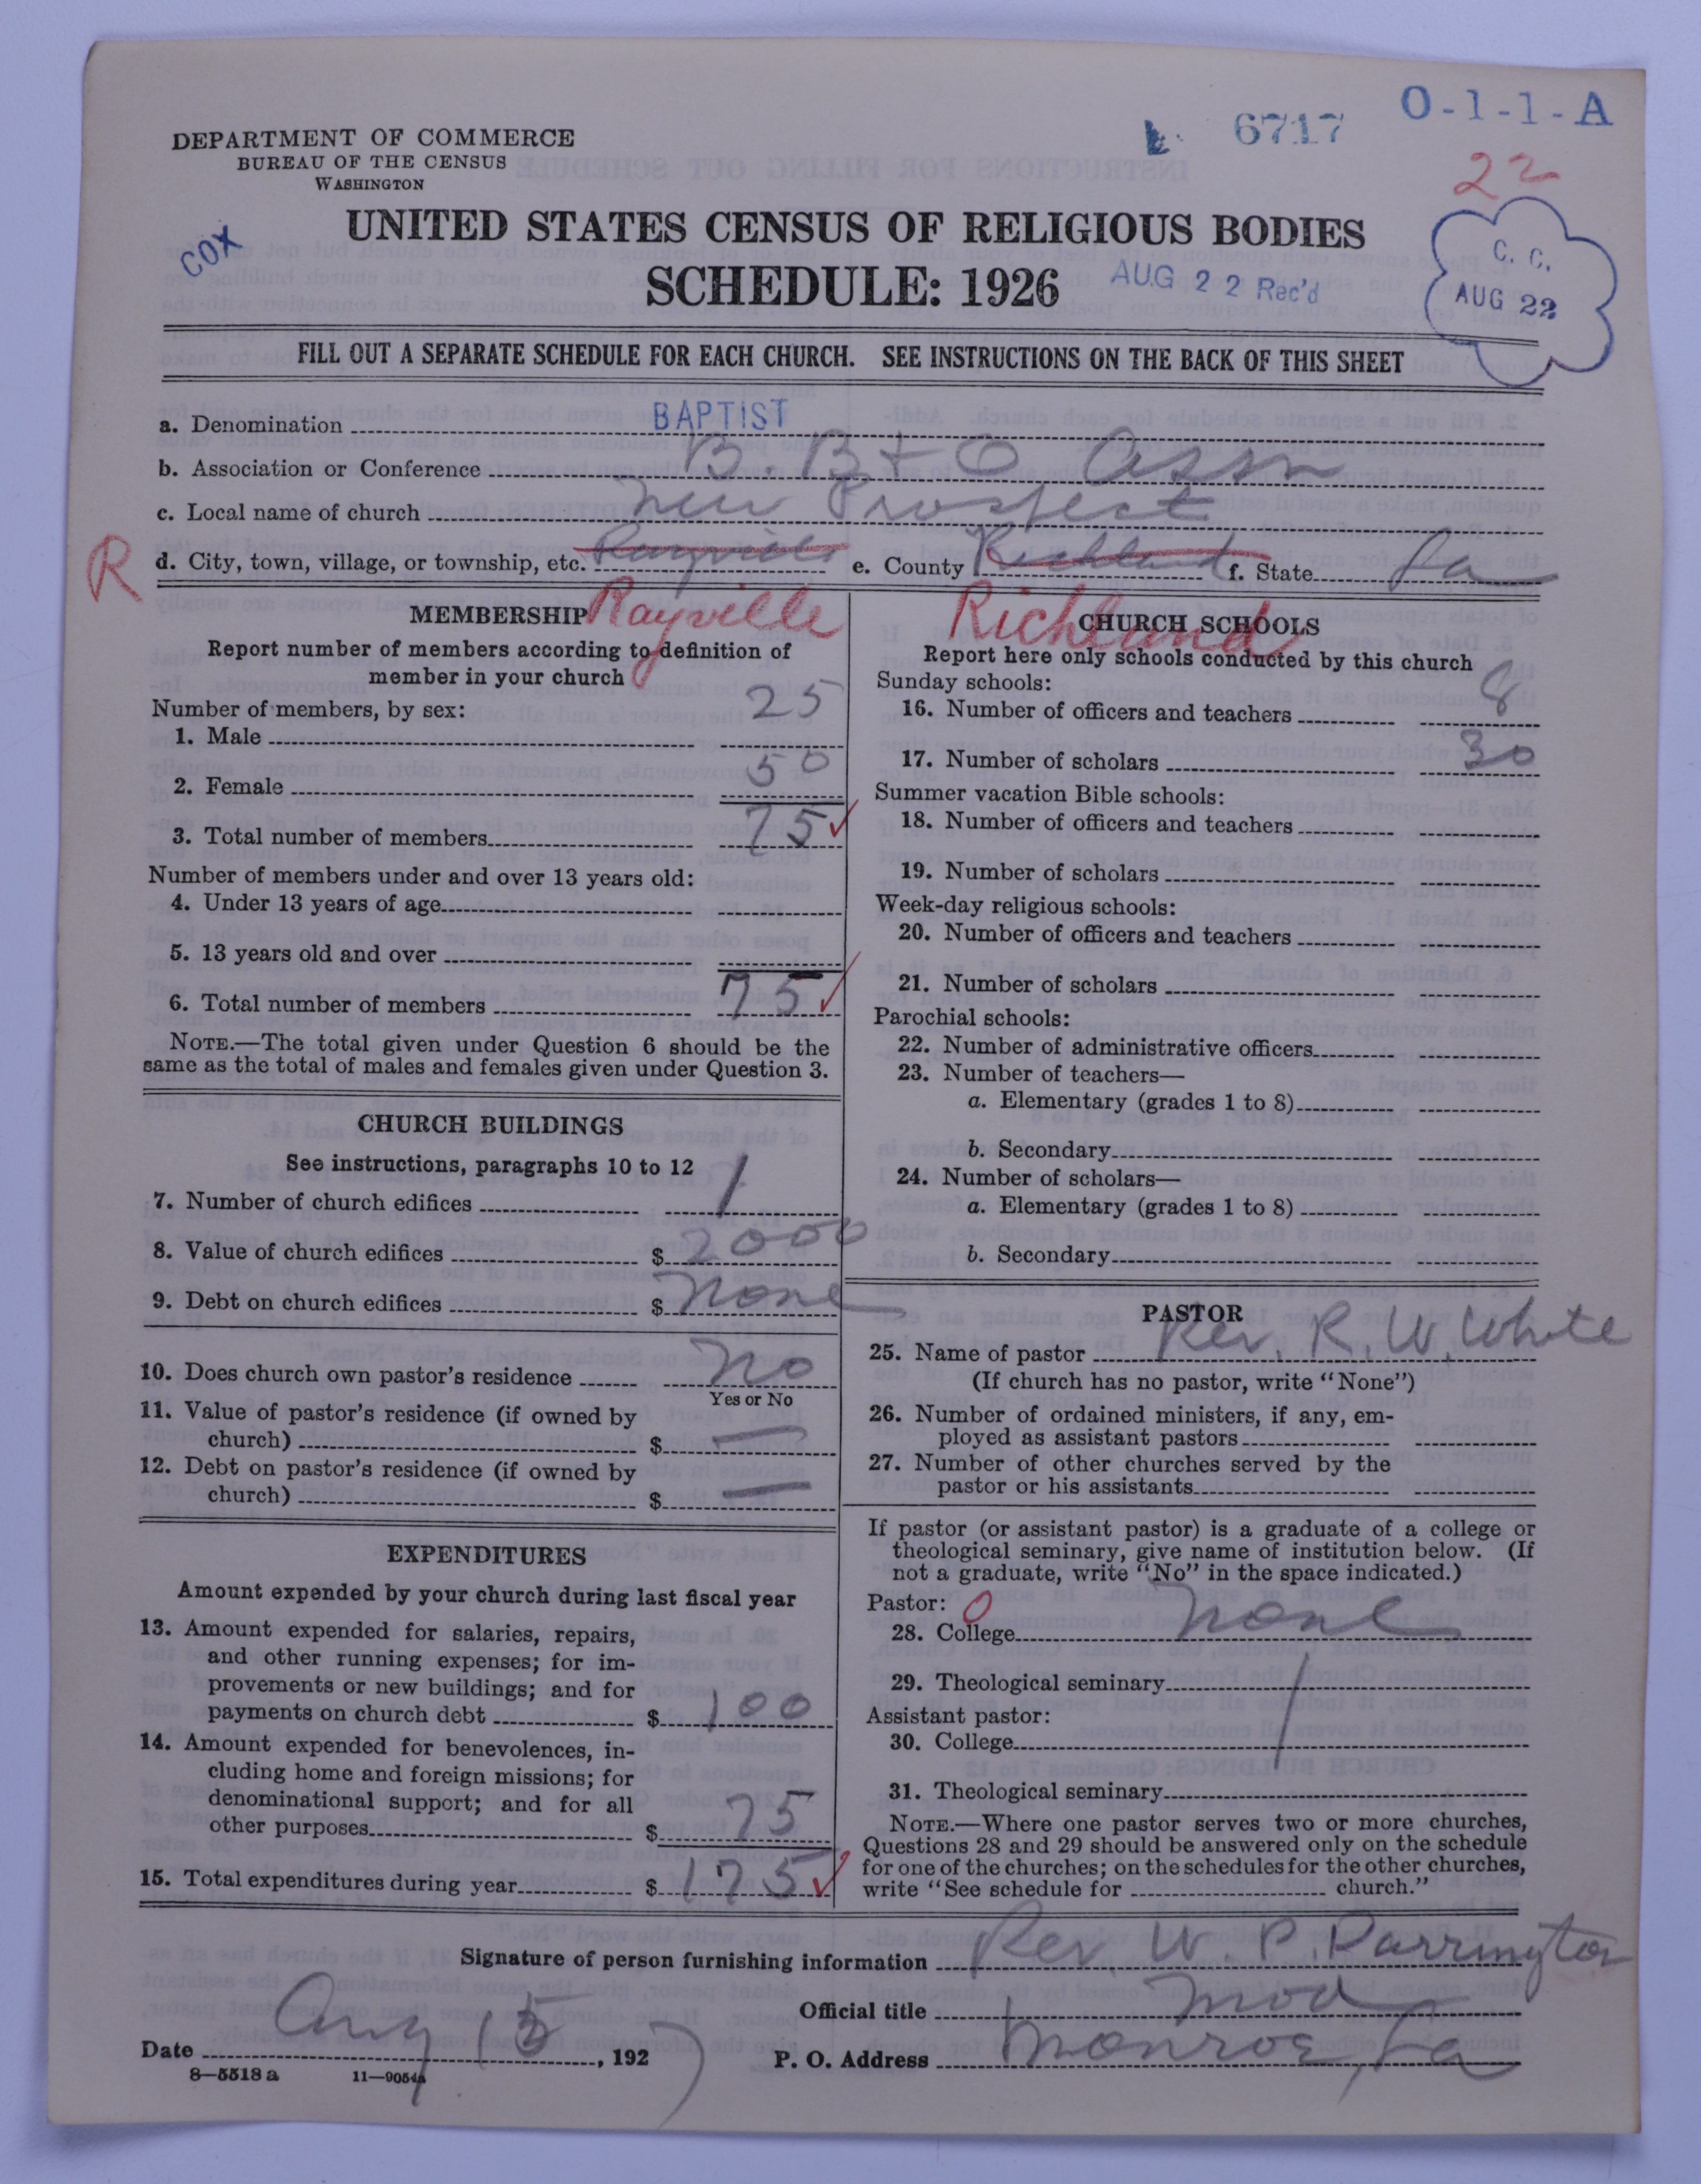 O-1-1-A
6717
DEPARTMENT OF COMMERCE
BUREAU OF THE CENSUS
WASHINGTON
22
COX
UNITED STATES CENSUS OF RELIGIOUS BODIES
SCHEDULE: 1926
AUG 22 Rec'd
C. C.
AUG 22
FILL OUT A SEPARATE SCHEDULE FOR EACH CHURCH. SEE INSTRUCTIONS ON THE BACK OF THIS SHEET
a. Denomination BAPTIST
b. Association or Conference B. B + O Assn
c. Local name of church New Prospect
R
d. City, town, village, or township, etc. Rayville e. County Richland f. State La
Rayville Richland
MEMBERSHIP
Report number of members according to definition of
member in your church
Number of members, by sex:
1. Male 25
2. Female 50
3. Total number of members 75
Number of members under and over 13 years old:
4. Under 13 years of age
5. 13 years old and over
6. Total number of members 75
NOTE.—The total given under Question 6 should be the
same as the total of males and females given under Question 3.
CHURCH BUILDINGS
See instructions, paragraphs 10 to 12
7. Number of church edifices 1
8. Value of church edifices $ 2000
9. Debt on church edifices $ None
10. Does church own pastor's residence No
Yes or No
11. Value of pastor's residence (if owned by
church) $ —
12. Debt on pastor's residence (if owned by
church) $ —
EXPENDITURES
Amount expended by your church during last fiscal year
13. Amount expended for salaries, repairs,
and other running expenses; for im-
provements or new buildings; and for
payments on church debt $ 100
14. Amount expended for benevolences, in-
cluding home and foreign missions; for
denominational support; and for all
other purposes $ 75
15. Total expenditures during year $ 175
CHURCH SCHOOLS
Report here only schools conducted by this church
Sunday schools:
16. Number of officers and teachers 8
17. Number of scholars 30
Summer vacation Bible schools:
18. Number of officers and teachers
19. Number of scholars
Week-day religious schools:
20. Number of officers and teachers
21. Number of scholars
Parochial schools:
22. Number of administrative officers
23. Number of teachers—
a. Elementary (grades 1 to 8)
b. Secondary
24. Number of scholars—
a. Elementary (grades 1 to 8)
b. Secondary
PASTOR
25. Name of pastor Rev. R. W. White
(If church has no pastor, write "None")
26. Number of ordained ministers, if any, em-
ployed as assistant pastors
27. Number of other churches served by the
pastor or his assistants
If pastor (or assistant pastor) is a graduate of a college or
theological seminary, give name of institution below. (If
not a graduate, write "No" in the space indicated.)
Pastor: 0
28. College None
29. Theological seminary
Assistant pastor:
30. College
31. Theological seminary
NOTE.—Where one pastor serves two or more churches,
Questions 28 and 29 should be answered only on the schedule
for one of the churches; on the schedules for the other churches,
write "See schedule for church."
Signature of person furnishing information Rev. W. P. Darrington
Official title Mod
Date Aug 15, 1927
P. O. Address Monroe, La
8—5518 a 11—9054a